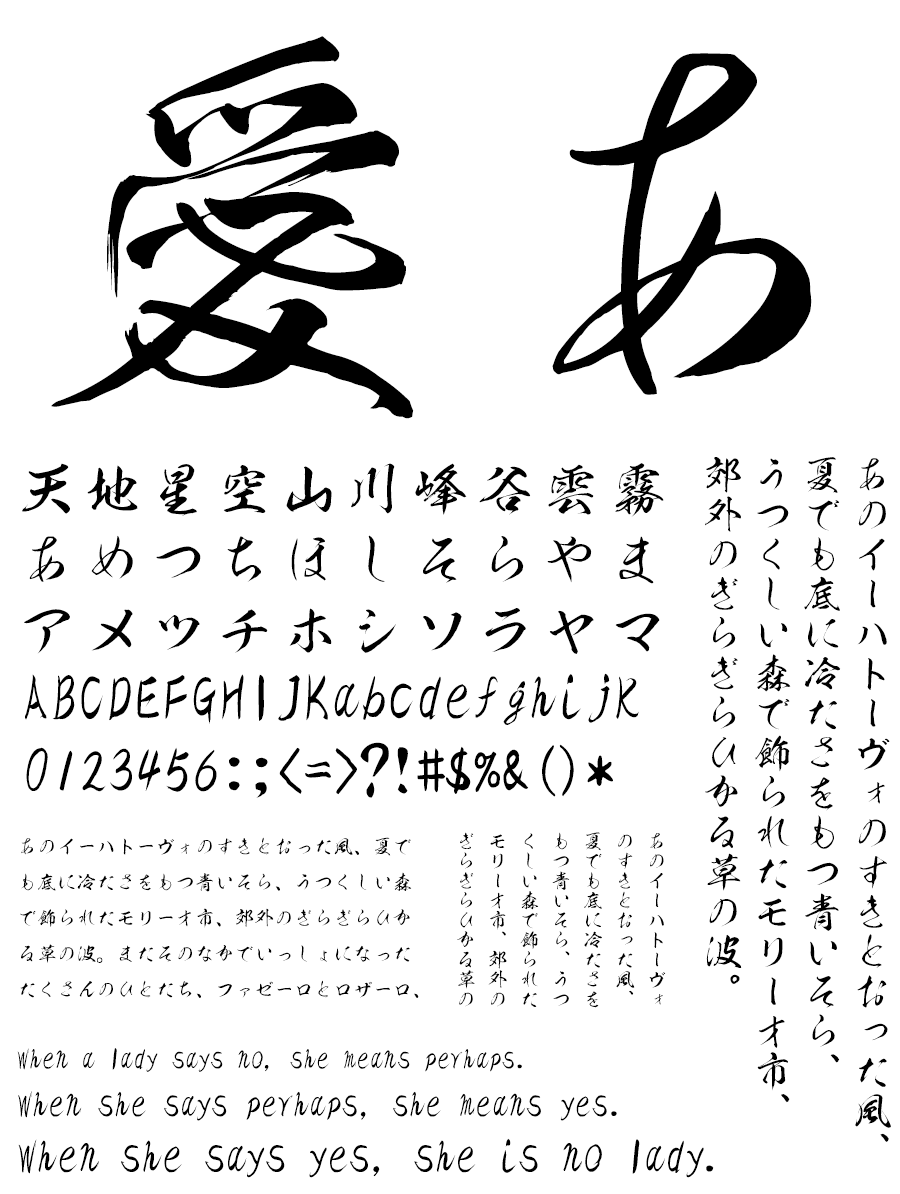 愛 あ
天地星空山川峰谷雲霧
あめつちほしそらやま
アメツチホシソラヤマ
ABCDEFGHIJKabcdefghijk
0123456:;<=>?!#$%&()*
あのイーハトーヴォのすきとおった風、
夏でも底に冷たさをもつ青いそら、
うつくしい森で飾られたモリーオ市、
郊外のぎらぎらひかる草の波。
あのイーハトーヴォのすきとおった風、夏で
も底に冷たさをもつ青いそら、うつくしい森
で飾られたモリーオ市、郊外のぎらぎらひか
る草の波。またそのなかでいっしょになった
たくさんのひとたち、ファゼーロとロザーロ、
あのイーハトーヴォ
のすきとおった風、
夏でも底に冷たさを
もつ青いそら、うつ
くしい森で飾られた
モリーオ市、郊外の
ぎらぎらひかる草の
When a lady says no, she means perhaps.
When she says perhaps, she means yes.
When she says yes, she is no lady.